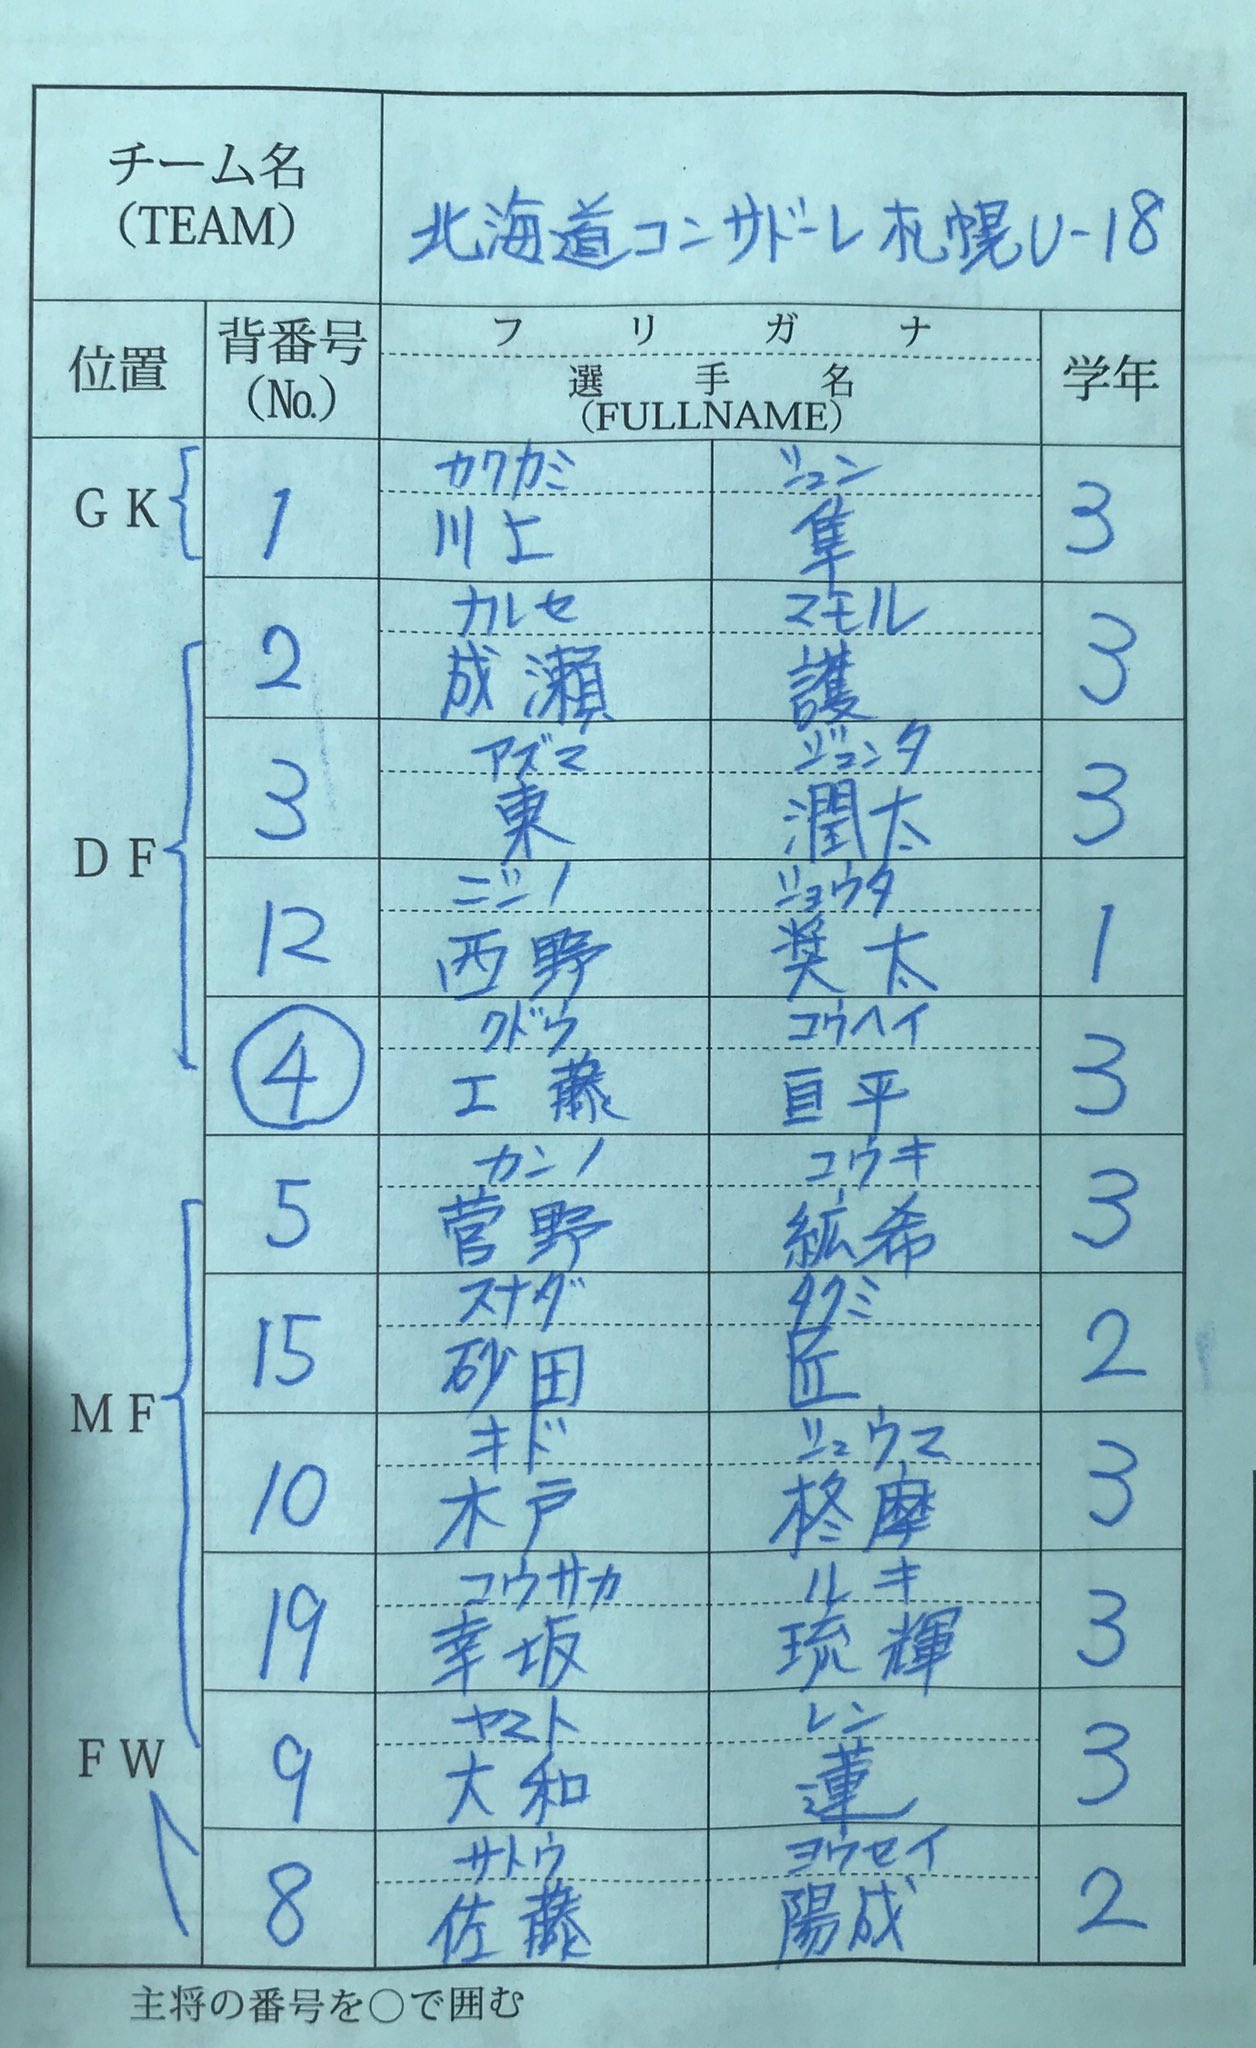 チーム名
(TEAM)
北海道コンサドーレ札幌U-18
位置
背番号
(No.)
フリガナ
選手名
(FULLNAME)
学年
GK
1
カワカミ ジュン
川上 隼
3
2
ナルセ マモル
成瀬 護
3
DF
3
アズマ ジュンタ
東 潤太
3
12
ニシノ ショウタ
西野 奨太
1
4
クドウ コウヘイ
工藤 亘平
3
5
カンノ コウキ
菅野 紘希
3
15
スナダ タクミ
砂田 匠
2
MF
10
キド シュウマ
木戸 柊摩
3
19
コウサカ ルキ
幸坂 琉輝
3
FW
9
ヤマト レン
大和 蓮
3
8
サトウ ヨウセイ
佐藤 陽成
2
主将の番号を○で囲む